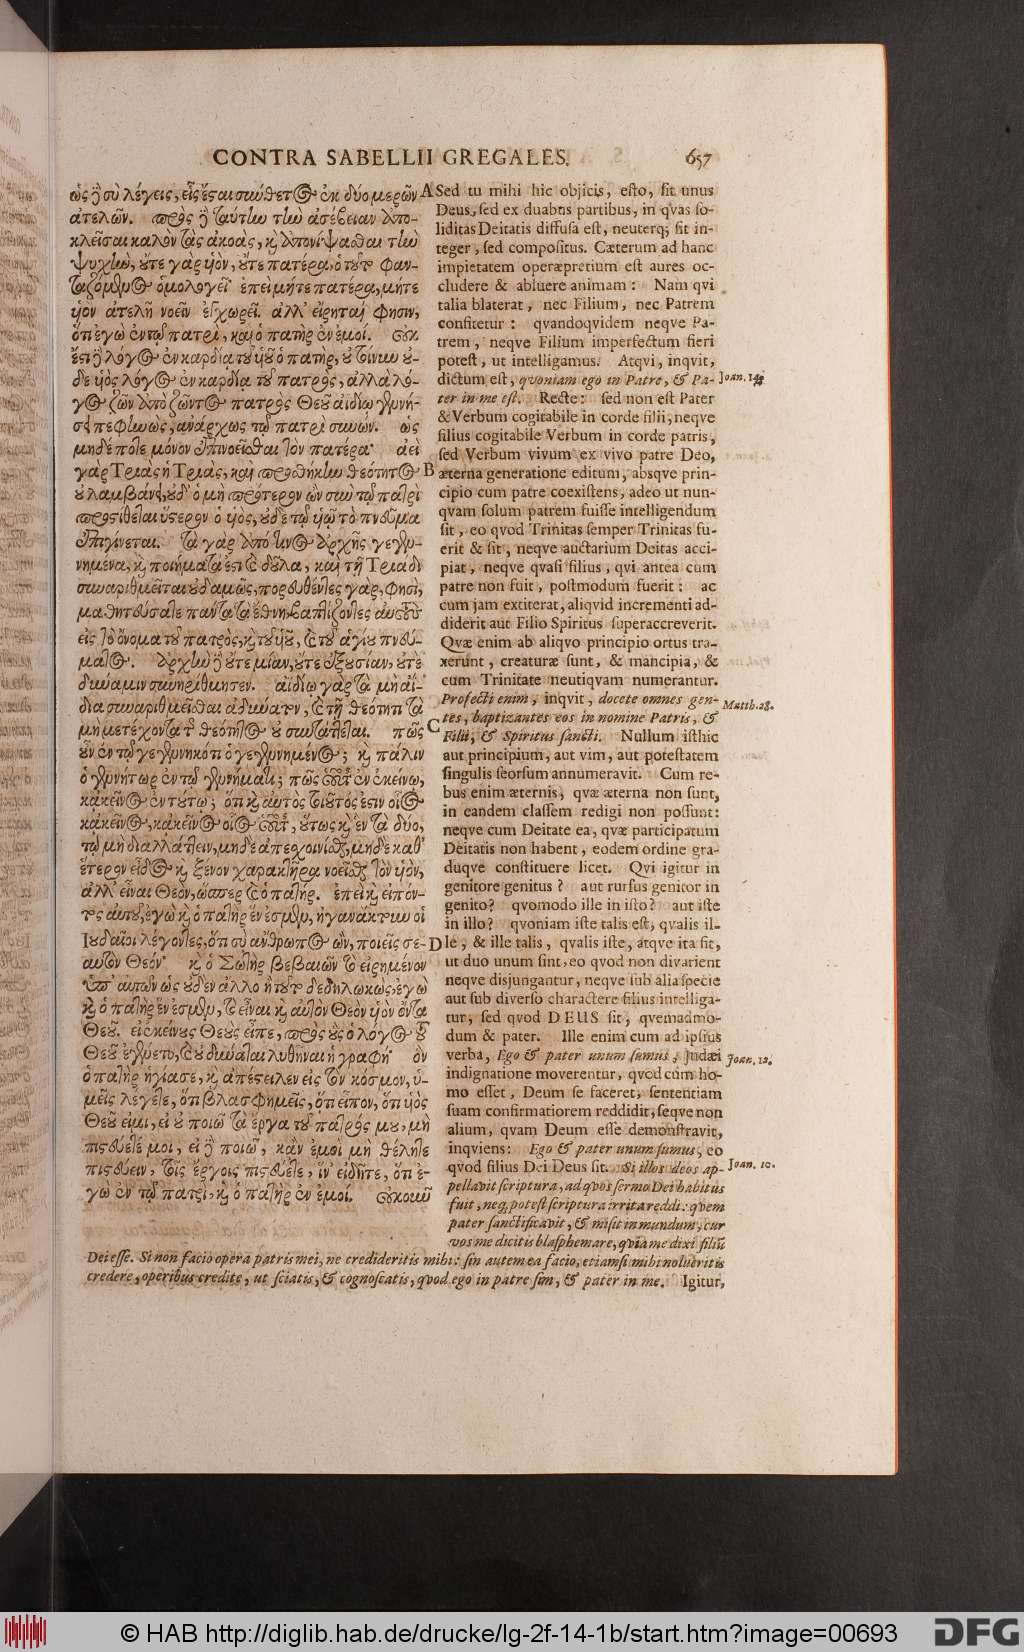 CONTRA SABELLII GREGALES. 657
ὡς ἢ σὺ λέγεις, εἷς ἔςαι σύνθετος ἐκ δύο μερῶν
ἀτελῶν. πρὸς ἢ ταύτην τὴν ἀσέβειαν ἀπο-
κλεῖσαι καλὸν τὰς ἀκοὰς, καὶ ἀπονίψαθαι τὴν
ψυχὴν, ὔτε γὰρ υἱὸν, ὔτε πατέρα, ὁ τῦτο φαν-
ταζόμενος ὁμολογεῖ· ἐπεὶ μήτε πατέρα, μήτε
υἱὸν ἀτελῆ νοεῖν ἐγχωρεῖ. ἀλλ' εἴρηται φησιν,
ὅτι ἐγὼ ἐν τῷ πατρὶ, καὶ ὁ πατὴρ ἐν ἐμοί. ἐκ
ἔςι ἢ λόγος ἐν καρδίᾳ τῦ υἱῦ ὁ πατὴρ,
δὲ υἱὸς λόγος ἐν καρδίᾳ τῦ πατρὸς, ἀλλὰ λό-
γος ζῶν ἀπὸ ζῶντος πατρὸς Θεῦ ἀϊδίως γεννή-
σει πεφηνὼς, ἀνάρχως τῷ πατρὶ συνών. ὡς
μηδέποτε μόνον ἐπινοεῖθαι τὸν πατέρα· ἀεὶ
γὰρ Τριὰς ἡ Τριὰς, καὶ προθήκην θεότητος
ὐ λαμβάνει, ὐδ' ὁ μὴ πρότερον ὢν σὺν τῷ πατρὶ
προςίθεται ὕςερον ὁ υἱὸς, ὐδὲ τῷ υἱῷ τὸ πνεῦμα
ἐπιγίνεται. τὰ γὰρ ἀπό τινος ἀρχῆς γεγεν-
νημένα, καὶ ποιήματά ἐςι καὶ δῦλα, καὶ τῇ Τριάδι
συναριθμεῖται ὐδαμῶς, πορευθέντες γὰρ, φησὶ,
μαθητεύσατε πάντα τὰ ἔθνη, βαπτίζοντες αὐτὺς
εἰς τὸ ὄνομα τῦ πατρὸς, καὶ τῦ υἱῦ, καὶ τῦ ἁγίυ πνεύ-
ματος. ἀρχὴν ἢ ὔτε μίαν, ὔτε ἐξυσίαν, ὔτε
δύναμιν συνηρίθμησεν. ἀϊδίῳ γὰρ τὰ μὴ ἀΐ-
δια συναριθμεῖθαι ἀδύνατον, καὶ τῇ θεότητι τὰ
μὴ μετέχοντα τῆς θεότητος ὐ συντάττεται. πῶς
ὖν ἐν τῷ γεγεννηκότι ὁ γεγεννημένος; καὶ πάλιν
ὁ γεννήτωρ ἐν τῷ γεννήματι; πῶς ὗτος ἐν ἐκείνῳ,
κἀκεῖνος ἐν τύτῳ; ὅτι καὶ αὐτὸς τοιῦτός ἐςιν οἷος
κἀκεῖνος, κἀκεῖνος οἷος ὗτος, ὕτως καὶ ἓν τὰ δύο,
τῷ μὴ διαλλάττειν, μηδὲ ἀπεχοινίθαι, μηδὲ καθ'
ἕτερον εἶδος καὶ ξένον χαρακτῆρα νοεῖθαι τὸν υἱὸν,
ἀλλ' εἶναι Θεὸν, ὥσπερ καὶ ὁ πατήρ. ἐπεὶ καὶ εἰπόν-
τος αὐτῦ, ἐγὼ καὶ ὁ πατὴρ ἕν ἐσμεν, ἠγανάκτυν οἱ
Ἰυδαῖοι λέγοντες, ὅτι σὺ ἄνθρωπος ὢν, ποιεῖς σε-
αυτὸν Θεόν· καὶ ὁ Σωτὴρ βεβαιῶν τὸ εἰρημένον
ὑπ' αὐτῶν ὡς ὐδὲν ἄλλο ἢ τῦτο δεδηλωκὼς, ἐγὼ
καὶ ὁ πατὴρ ἕν ἐσμεν, καὶ εἶναι καὶ αὐτὸν Θεὸν υἱὸν ὄντα
Θεῦ. εἰ ἐκείνυς Θεὺς εἶπε, πρὸς ὓς ὁ λόγος τῦ
Θεῦ ἐγένετο, καὶ ὐ δύναται λυθῆναι ἡ γραφή· ὃν
ὁ πατὴρ ἡγίασε, καὶ ἀπέςειλεν εἰς τὸν κόσμον, ὑ-
μεῖς λέγετε, ὅτι βλασφημεῖς, ὅτι εἶπον, ὅτι υἱὸς
Θεῦ εἰμι, εἰ ὐ ποιῶ τὰ ἔργα τῦ πατρός μυ, μὴ
πιςεύετέ μοι, εἰ ἢ ποιῶ, κἂν ἐμοὶ μὴ θέλητε
πιςεύειν, τοῖς ἔργοις πιςεύετε, ἵν' εἰδῆτε, ὅτι ἐ-
γὼ ἐν τῷ πατρὶ, καὶ ὁ πατὴρ ἐν ἐμοί. ἐκῦν
A Sed tu mihi hic objicis, esto, sit unus
Deus, sed ex duabus partibus, in qvas so-
liditas Deitatis diffusa est, neuterq; sit in-
teger, sed compositus. Cæterum ad hanc
impietatem operæpretium est aures oc-
cludere & abluere animam: Nam qvi
talia blaterat, nec Filium, nec Patrem
confitetur: qvandoqvidem neqve Pa-
trem, neqve Filium imperfectum fieri
potest, ut intelligamus. Atqvi, inqvit,
dictum est, qvoniam ego in Patre, & Pa- Joan. 14.
ter in me est. Recte: sed non est Pater
& Verbum cogitabile in corde filii, neqve
filius cogitabile Verbum in corde patris,
sed Verbum vivum ex vivo patre Deo,
B æterna generatione editum, absqve prin-
cipio cum patre coexistens, adeo ut nun-
qvam solum patrem fuisse intelligendum
sit, eo qvod Trinitas semper Trinitas fu-
erit & sit, neqve auctarium Deitas acci-
piat, neqve qvasi filius, qvi antea cum
patre non fuit, postmodum fuerit: ac
cum jam extiterat, aliqvid incrementi ad-
diderit aut Filio Spiritus superaccreverit.
Qvæ enim ab aliqvo principio ortus tra-
xerunt, creaturæ sunt, & mancipia, &
cum Trinitate neutiqvam numerantur.
Profecti enim, inqvit, docete omnes gen- Matth. 28.
C tes, baptizantes eos in nomine Patris, &
Filii, & Spiritus sancti. Nullum isthic
aut principium, aut vim, aut potestatem
singulis seorsum annumeravit. Cum re-
bus enim æternis, qvæ æterna non sunt,
in eandem classem redigi non possunt:
neqve cum Deitate ea, qvæ participatum
Deitatis non habent, eodem ordine gra-
duqve constituere licet. Qvi igitur in
genitore genitus? aut rursus genitor in
genito? qvomodo ille in isto? aut iste
in illo? qvoniam iste talis est, qvalis il-
D le, & ille talis, qvalis iste, atqve ita sit,
ut duo unum sint, eo qvod non divarient
neqve disjungantur, neqve sub alia specie
aut sub diverso charactere filius intelliga-
tur, sed qvod DEUS sit, qvemadmo-
dum & pater. Ille enim cum ad ipsius
verba, Ego & pater unum sumus, Judæi Joan. 10.
indignatione moverentur, qvod cum ho-
mo esset, Deum se faceret, sententiam
suam confirmatiorem reddidit, seqve non
alium, qvam Deum esse demonstravit,
inqviens: Ego & pater unum sumus, eo
qvod filius Dei Deus sit. Si illos deos ap- Joan. 10.
pellavit scriptura, ad qvos sermo Dei habitus
fuit, neq; potest scriptura irrita reddi: qvem
pater sanctificavit, & misit in mundum, cur
vos me dicitis blasphemare, qvia me dixi filiũ
Dei esse. Si non facio opera patris mei, ne credideritis mihi: sin autem ea facio, etiamsi mihi nolueritis
credere, operibus credite, ut sciatis, & cognoscatis, qvod ego in patre sim, & pater in me. Igitur,
© HAB http://diglib.hab.de/drucke/lg-2f-14-1b/start.htm?image=00693
DFG